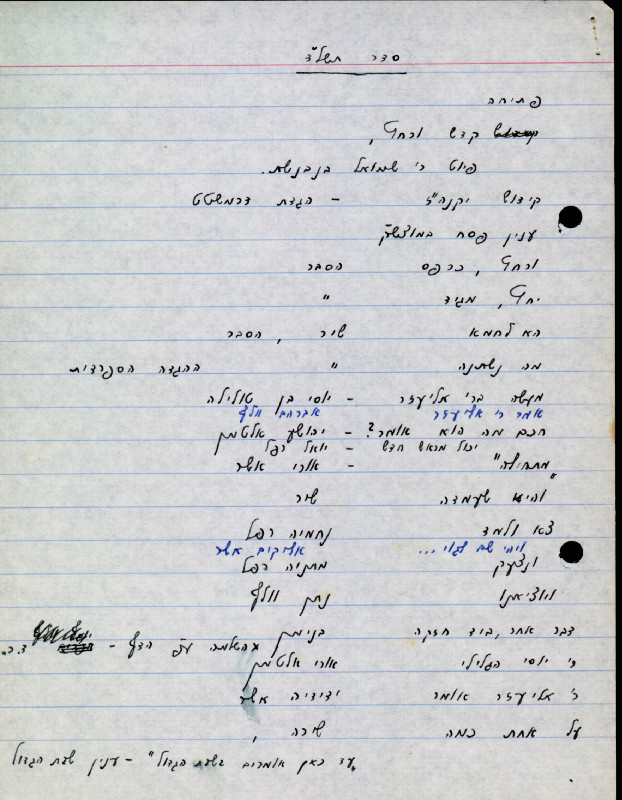 סדר תשל"ד
פתיחה
קדש ורחץ,
פיוט ר' שמואל בנבנשת.
קידוש יקנה"ז - הגדת דרמשטט
ענין פסח במוצש"ק
ורחץ, כרפס הסבר
יחץ, מגיד "
הא לחמא שיר, הסבר
מה נשתנה " ההגדה הספרדית
מעשה ברי אליעזר - יוסי בן טולילה
אמר ר' אליעזר אברהם וולף
חכם מה הוא אומר? - יהושע אלטמן
יכול מראש חדש - יואל רפל
"מתחילה" - אורי אשר
והיא שעמדה שיר
צא ולמד נחמיה רפל
ויהי שם לגוי ... אליקים אשר
ונצעק מתניה רפל
ויוציאנו נתן וולף
דבר אחר, ביד חזקה בנימין והשלמה עפ הדף - צ.כ.
ר' יוסי הגלילי אורי אלטמן
ר' אליעזר אומר ידידיה אשר
על אחת כמה שירה,
"עד כאן אומרים בשבת הגדול" - ענין שבת הגדול